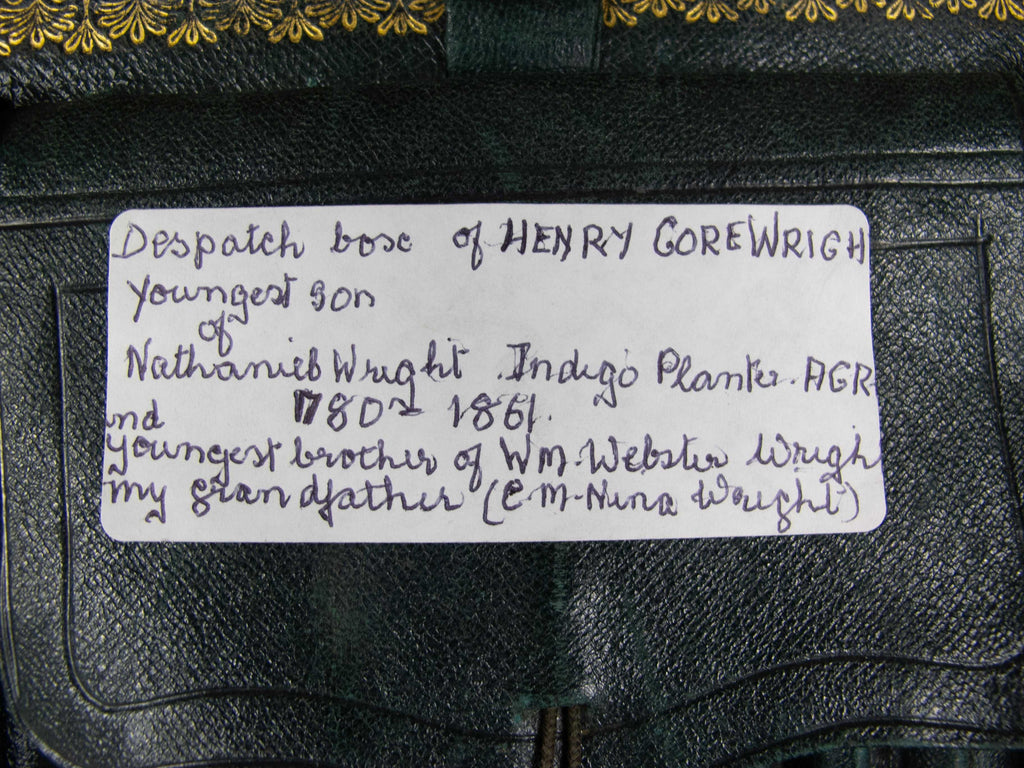 Despatch box of HENRY GORE WRIGH
youngest son
of
Nathaniel Wright. Indigo Planter. AGR
nd 1780 - 1861.
youngest brother of WM. Webster Wrigh
my grandfather (C. M. Nina Wright)